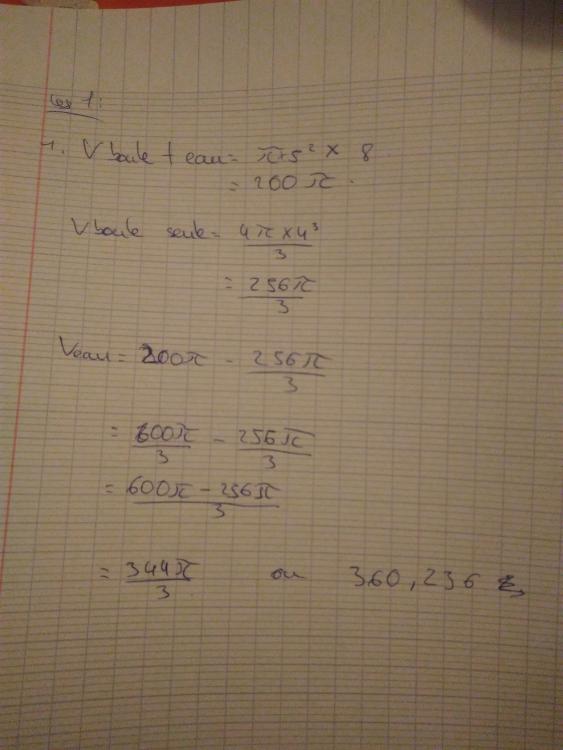 ex 1:
1. V boule + eau = π×5² × 8
= 200 π.
V boule seule = 4π×4³/3
= 256π/3
Veau = 200π - 256π/3
= 600π/3 - 256π/3
= 600π - 256π/3
= 344π/3 ou 360,236